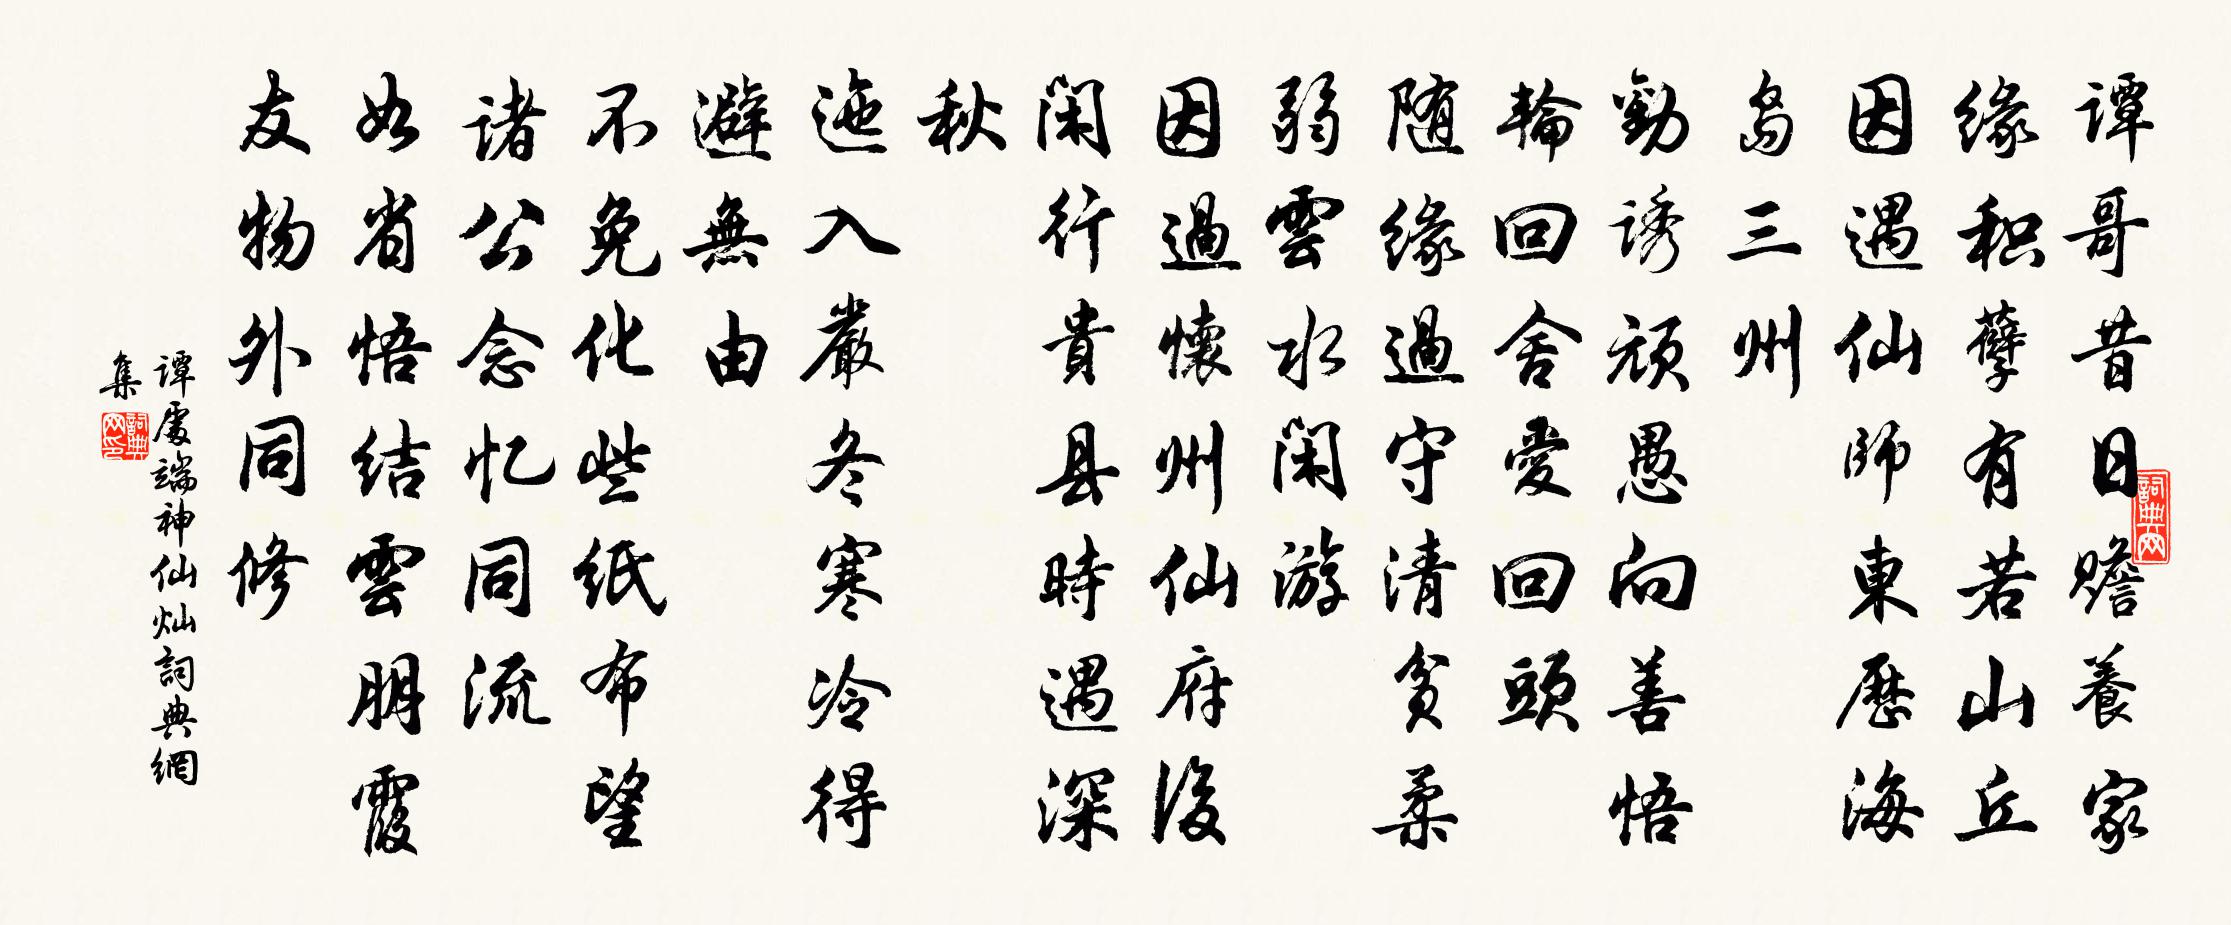 谭哥昔日赡養家
缘积孽有若山丘
因遇仙师東歷海
岛三州
勸诱顽愚向善悟
輪回舍愛回頭
随缘過守清贫柔
弱雲水闲游
因過懷州仙府後
闲行貴县時遇深
秋
迤入嚴冬寒冷得
避無由
不免化些纸布望
诸公念忆同流
如省悟结雲朋霞
友物外同修
谭處端神仙灿詞典網
集
詞典网
詞典网印